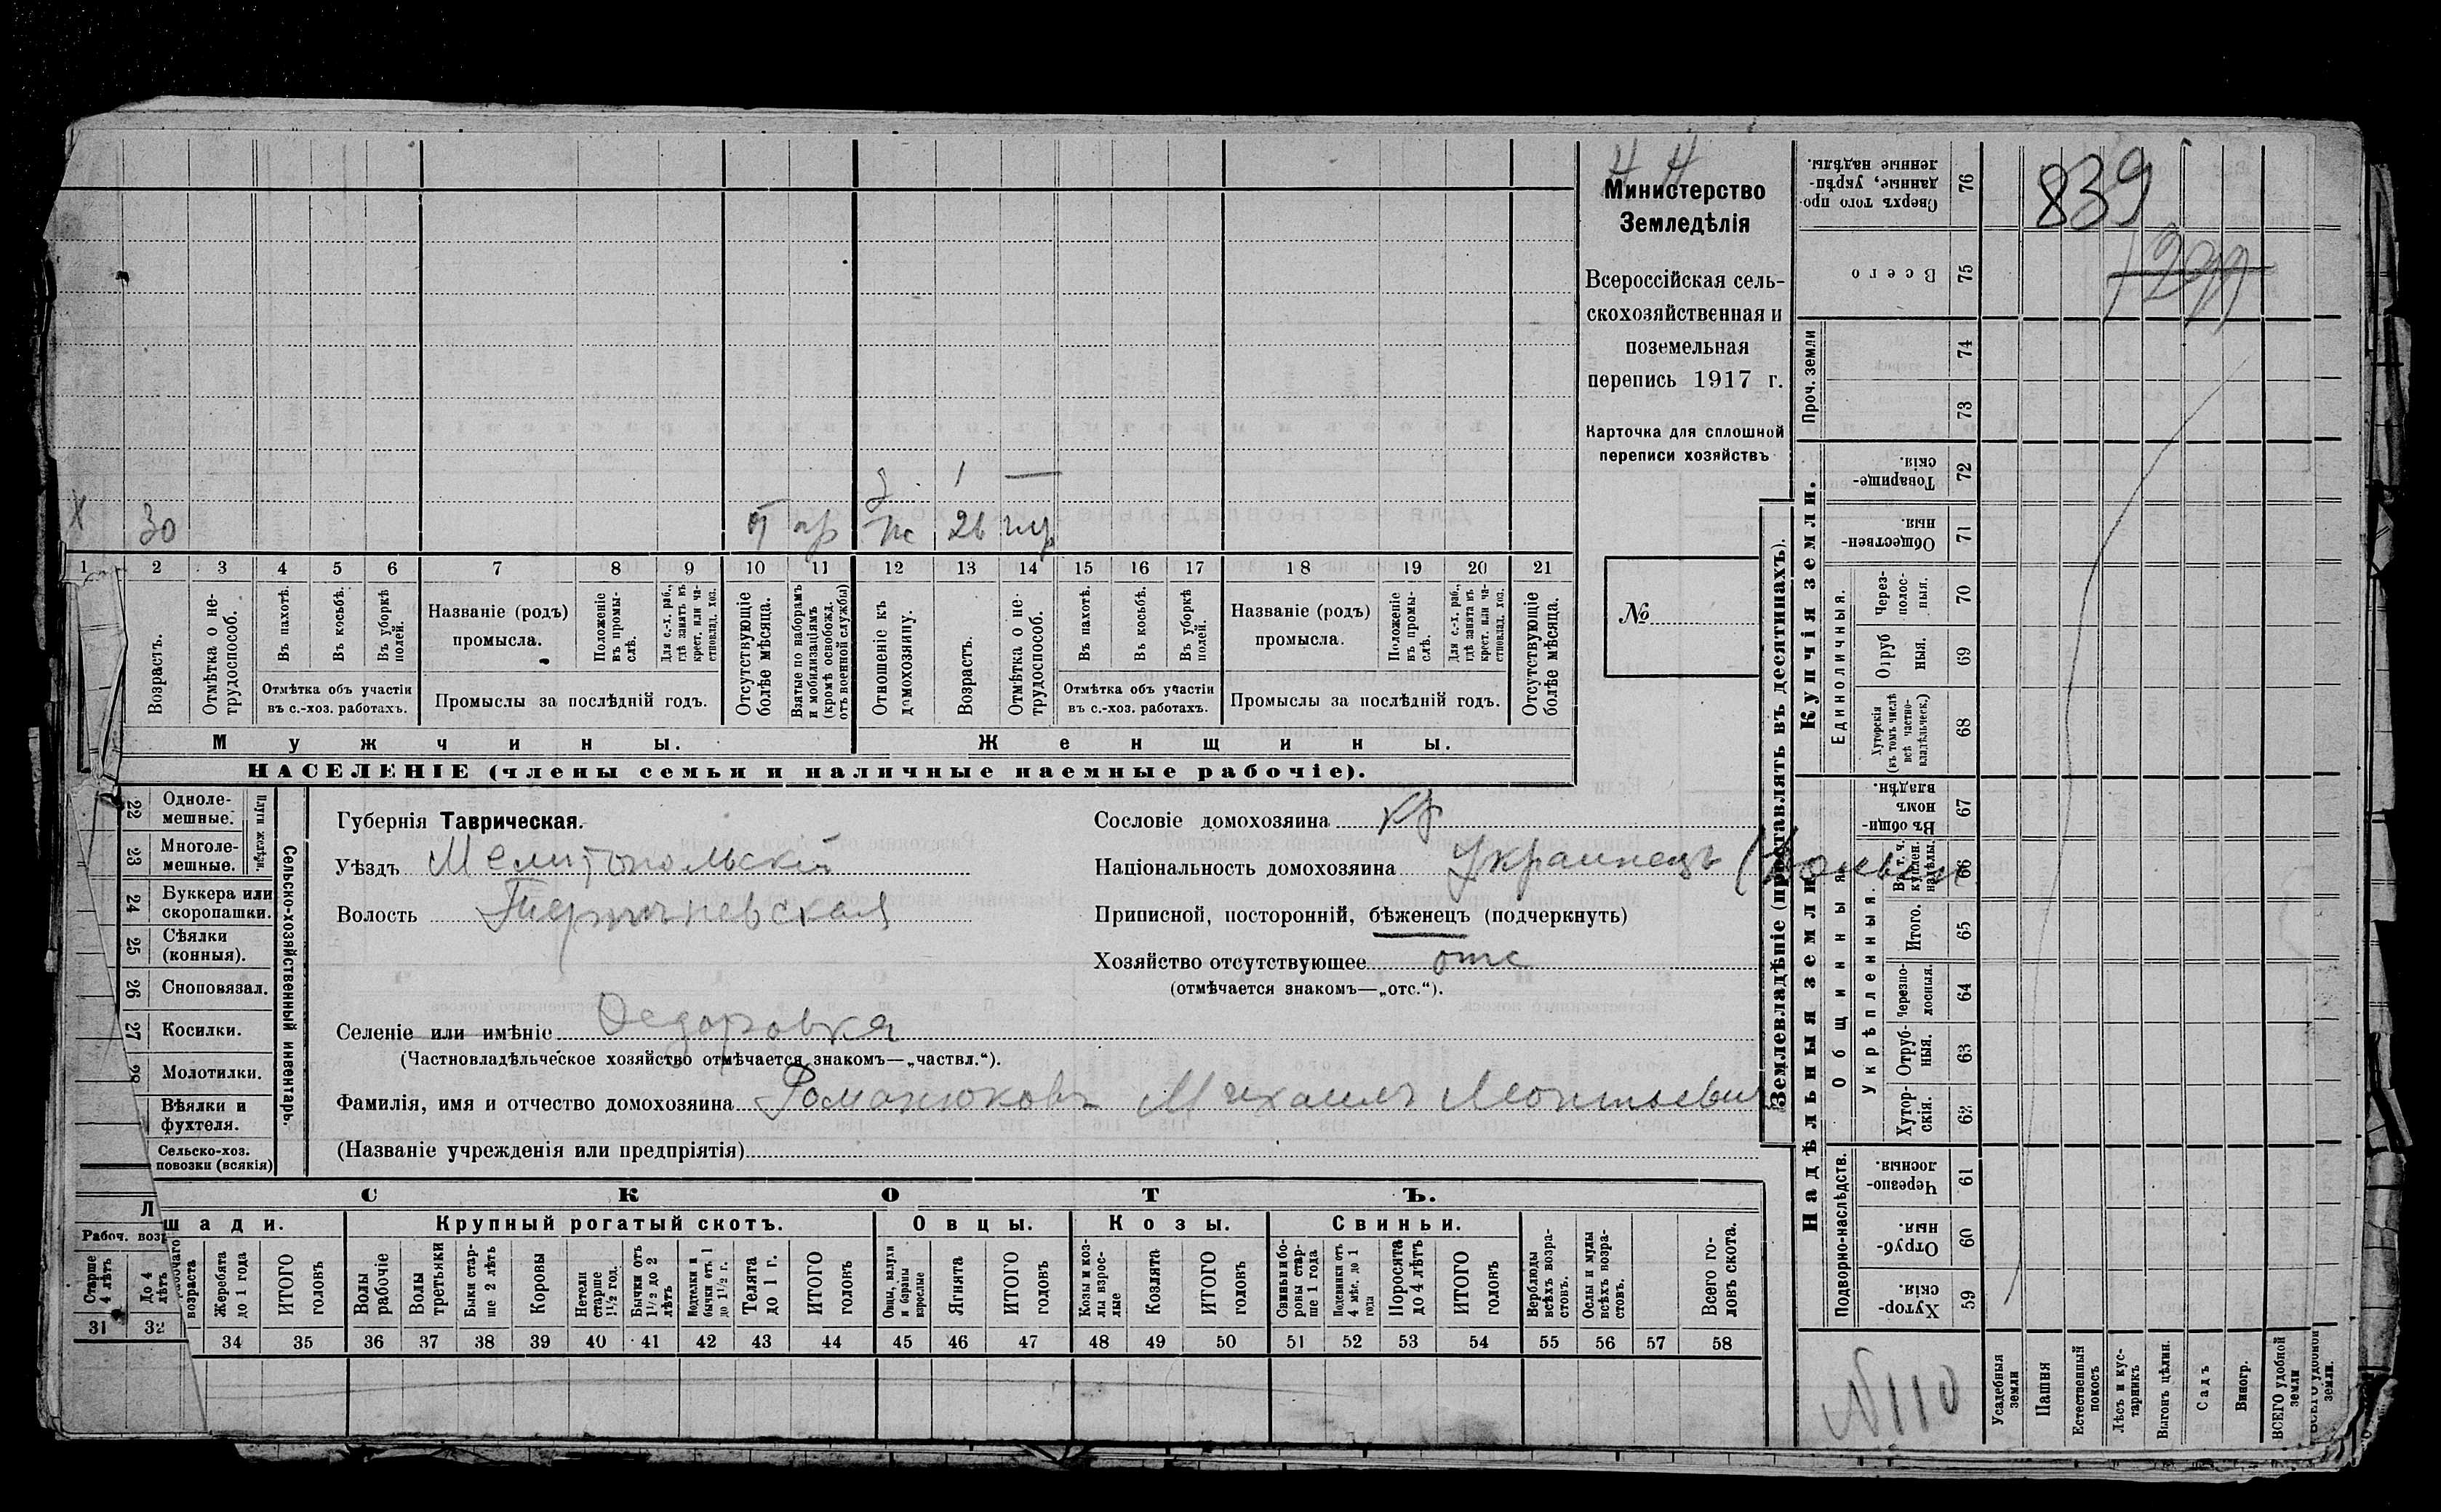 Н Н
Министерство
Земледѣлія
Всероссійская сель-
скохозяйственная и
поземельная
перепись 1917 г.
Карточка для сплошной
переписи хозяйствъ
№
839
з. 1 —
х 30 от пр ж 26 гр
1 2 3 4 5 6 7 8 9 10 11 12 13 14 15 16 17 18 19 20 21
Возрастъ.
Отмѣтка о не-
трудоспособ.
Въ пахотѣ.
Въ косьбѣ.
Въ уборкѣ
полей.
Отмѣтка объ участіи
въ с.-хоз. работахъ.
Названіе (родъ)
промысла.
Положеніе
въ промы-
слѣ.
Для с.-х. раб.,
гдѣ занятъ въ
крест. или ча-
стновлад. хоз.
Промыслы за послѣдній годъ.
Отсутствующіе
болѣе мѣсяца.
Взятые по наборамъ
и мобилизаціямъ
(кромѣ освобожд.
отъ военной службы)
Отношеніе къ
домохозяину.
Возрастъ.
Отмѣтка о не-
трудоспособ.
Въ пахотѣ.
Въ косьбѣ.
Въ уборкѣ
полей.
Отмѣтка объ участіи
въ с.-хоз. работахъ.
Названіе (родъ)
промысла.
Положеніе
въ промы-
слѣ.
Для с.-х. раб.,
гдѣ занята въ
крест. или ча-
стновлад. хоз.
Промыслы за послѣдній годъ.
Отсутствующіе
болѣе мѣсяца.
Мужчины.
Женщины.
НАСЕЛЕНІЕ (члены семьи и наличные наемные рабочіе).
Сельско-хозяйственный инвентарь.
Плуги желѣзн.
22 Одноле-
мешные.
23 Многоле-
мешные.
24 Буккера или
скоропашки.
25 Сѣялки
(конныя).
26 Сноповязал.
27 Косилки.
28 Молотилки.
Вѣялки и
фухтеля.
Сельско-хоз.
повозки (всякія)
Губернія Таврическая.
Уѣздъ Мелитопольскій
Волость Терпеневская
Сословіе домохозяина кр
Національность домохозяина Украинецъ
Приписной, посторонній, бѣженецъ (подчеркнуть)
Хозяйство отсутствующее отс
(отмѣчается знакомъ—„отс.“).
Селеніе или имѣніе Федоровка
(Частновладѣльческое хозяйство отмѣчается знакомъ—„частвл.“).
Фамилія, имя и отчество домохозяина Романюковъ Михаилъ Леонтьевич
(Названіе учрежденія или предпріятія)
СКОТЪ.
шади.
Крупный рогатый скотъ.
Овцы.
Козы.
Свиньи.
Рабоч. воз
Старше
4 лѣтъ
До 4
лѣтъ
возраста
Жеребята
до 1 года
ИТОГО
головъ
Волы
рабочіе
Волы
третьяки
Быки стар-
ше 2 лѣтъ
Коровы
Нетели
старше
1½ год.
Бычки отъ
1½ до 2
лѣтъ
Нетелки и
бычки отъ 1
до 1½ г.
Телята
до 1 г.
ИТОГО
головъ
Овцы, валухи
и бараны
взрослые
Ягнята
ИТОГО
головъ
Козы и коз-
лы взрос-
лые
Козлята
ИТОГО
головъ
Свиньи и бо-
ровы стар-
ше 1 года
Подсвинки отъ
4 мѣс. до 1
года
Поросята
до 4 лѣтъ
ИТОГО
головъ
Верблюды
всѣхъ возра-
стовъ.
Ослы и мулы
всѣхъ возра-
стовъ.
Всего го-
ловъ скота.
31 32 34 35 36 37 38 39 40 41 42 43 44 45 46 47 48 49 50 51 52 53 54 55 56 57 58
Землевладѣніе (проставлять въ десятинахъ).
Надѣльныя земли.
Купчія земли.
Проч. земли
Подворно-наслѣдств.
Общинныя
Укрѣпленныя.
Единоличныя.
Сверхъ того про-
данные, укрѣп-
ленные надѣлы. 76
Всего 75
74
73
Товарище-
скія. 72
Обществен-
ныя. 71
Через-
полос-
ныя. 70
Отруб
ныя. 69
Хуторскія
(въ томъ числѣ
всѣ частно-
владѣльческ.) 68
Въ общин-
номъ
владѣн. 67
В. т. ч.
куплен.
надѣлы. 66
Итого. 65
Черезпо-
лосныя. 64
Отруб-
ныя. 63
Хутор-
скія. 62
Черезпо-
лосныя. 61
Отруб-
ныя. 60
Хутор-
скія. 59
N110
Усадебныя
земли
Пашня
Естественный
покосъ
Лѣсъ и кус-
тарникъ
Выгонъ цѣлин.
Садъ
Виногр.
ВСЕГО удобной
земли